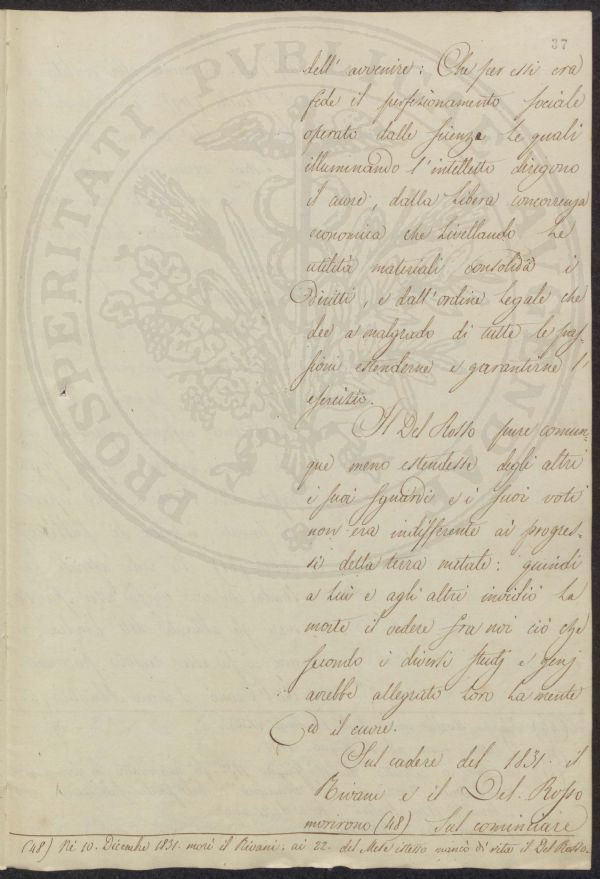 37
dell' avvenire: Che per essi era
fede il perfezionamento sociale
operato dalle scienze le quali
illuminando l'intelletto dirigono
il cuore, dalla libera concorrenza
economica che livellando le
utilità materiali consolida i
Diritti, e dall'ordine legale che
dee a malgrado di tutte le pas-
sioni estenderne e garantirne l'
esercizio.
Il Del Rosso pure comun-
que meno estendesse degli altri
i suoi sguardi e i suoi voti
non era indifferente ai progres-
si della terra natale: quindi
a Lui e agli altri invidiò la
morte il vedere fra noi ciò che
secondo i diversi studj e genj
avrebbe allegrato loro la mente
ed il cuore.
Sul cadere del 1831. il
Rivani e il Del-Rosso
morirono (48) Sul cominciare
(48) Ne 10. Dicembre 1831. morì il Rivani; ai 22. del Mese istesso mancò di vita il Del Rosso.
PROSPERITATI PUBLICAE